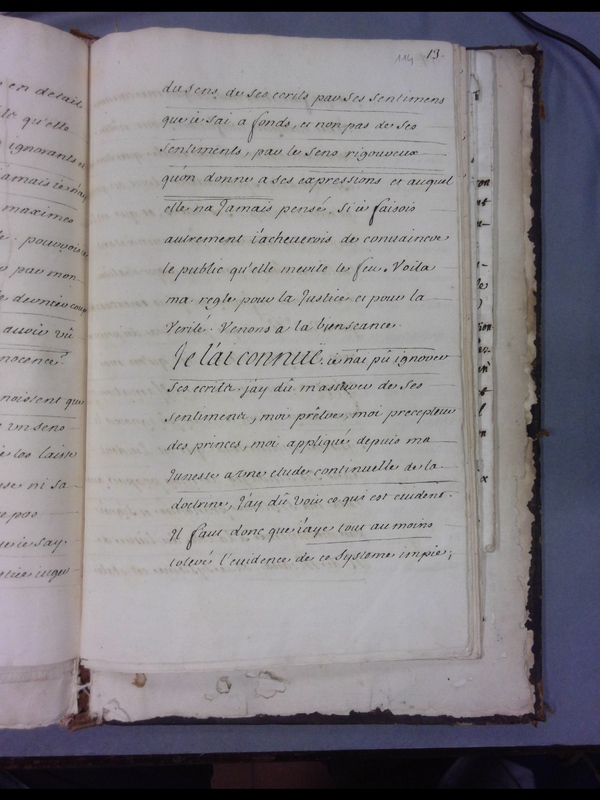 114 13.
du sens de ses ecrits par ses sentimens
que ie sai a fonds, et non pas de ses
sentiments, par le sens rigoureux
qu'on donne a ses expressions et auquel
elle na Jamais pensé. Si ie faisois
autrement i'acheuerois de conuaincre
le public qu'elle merite le feu. Voila
ma regle pour la Justice et pour la
Verité. Venons a la bienseance.
Je l'ai connuë. ie n'ai pû ignorer
ses ecrits. j'ay dû m'assurer de ses
sentimens, moi prêtre, moi precepteur
des princes, moi appliqué depuis ma
Junesse a vne etude continuelle de la
doctrine, J'ay dû voir ce qui est euident.
Il faut donc que i'aye tout au moins
toleré l'euidence de ce Systeme impie;
en detail
qu'elle
ignorants et
amais ie n'ay
maximes
pouuois
par mon
dernier
auoir vû
nocence?
noissent que
vn sens
laisse
ni sa
pas
ie say.